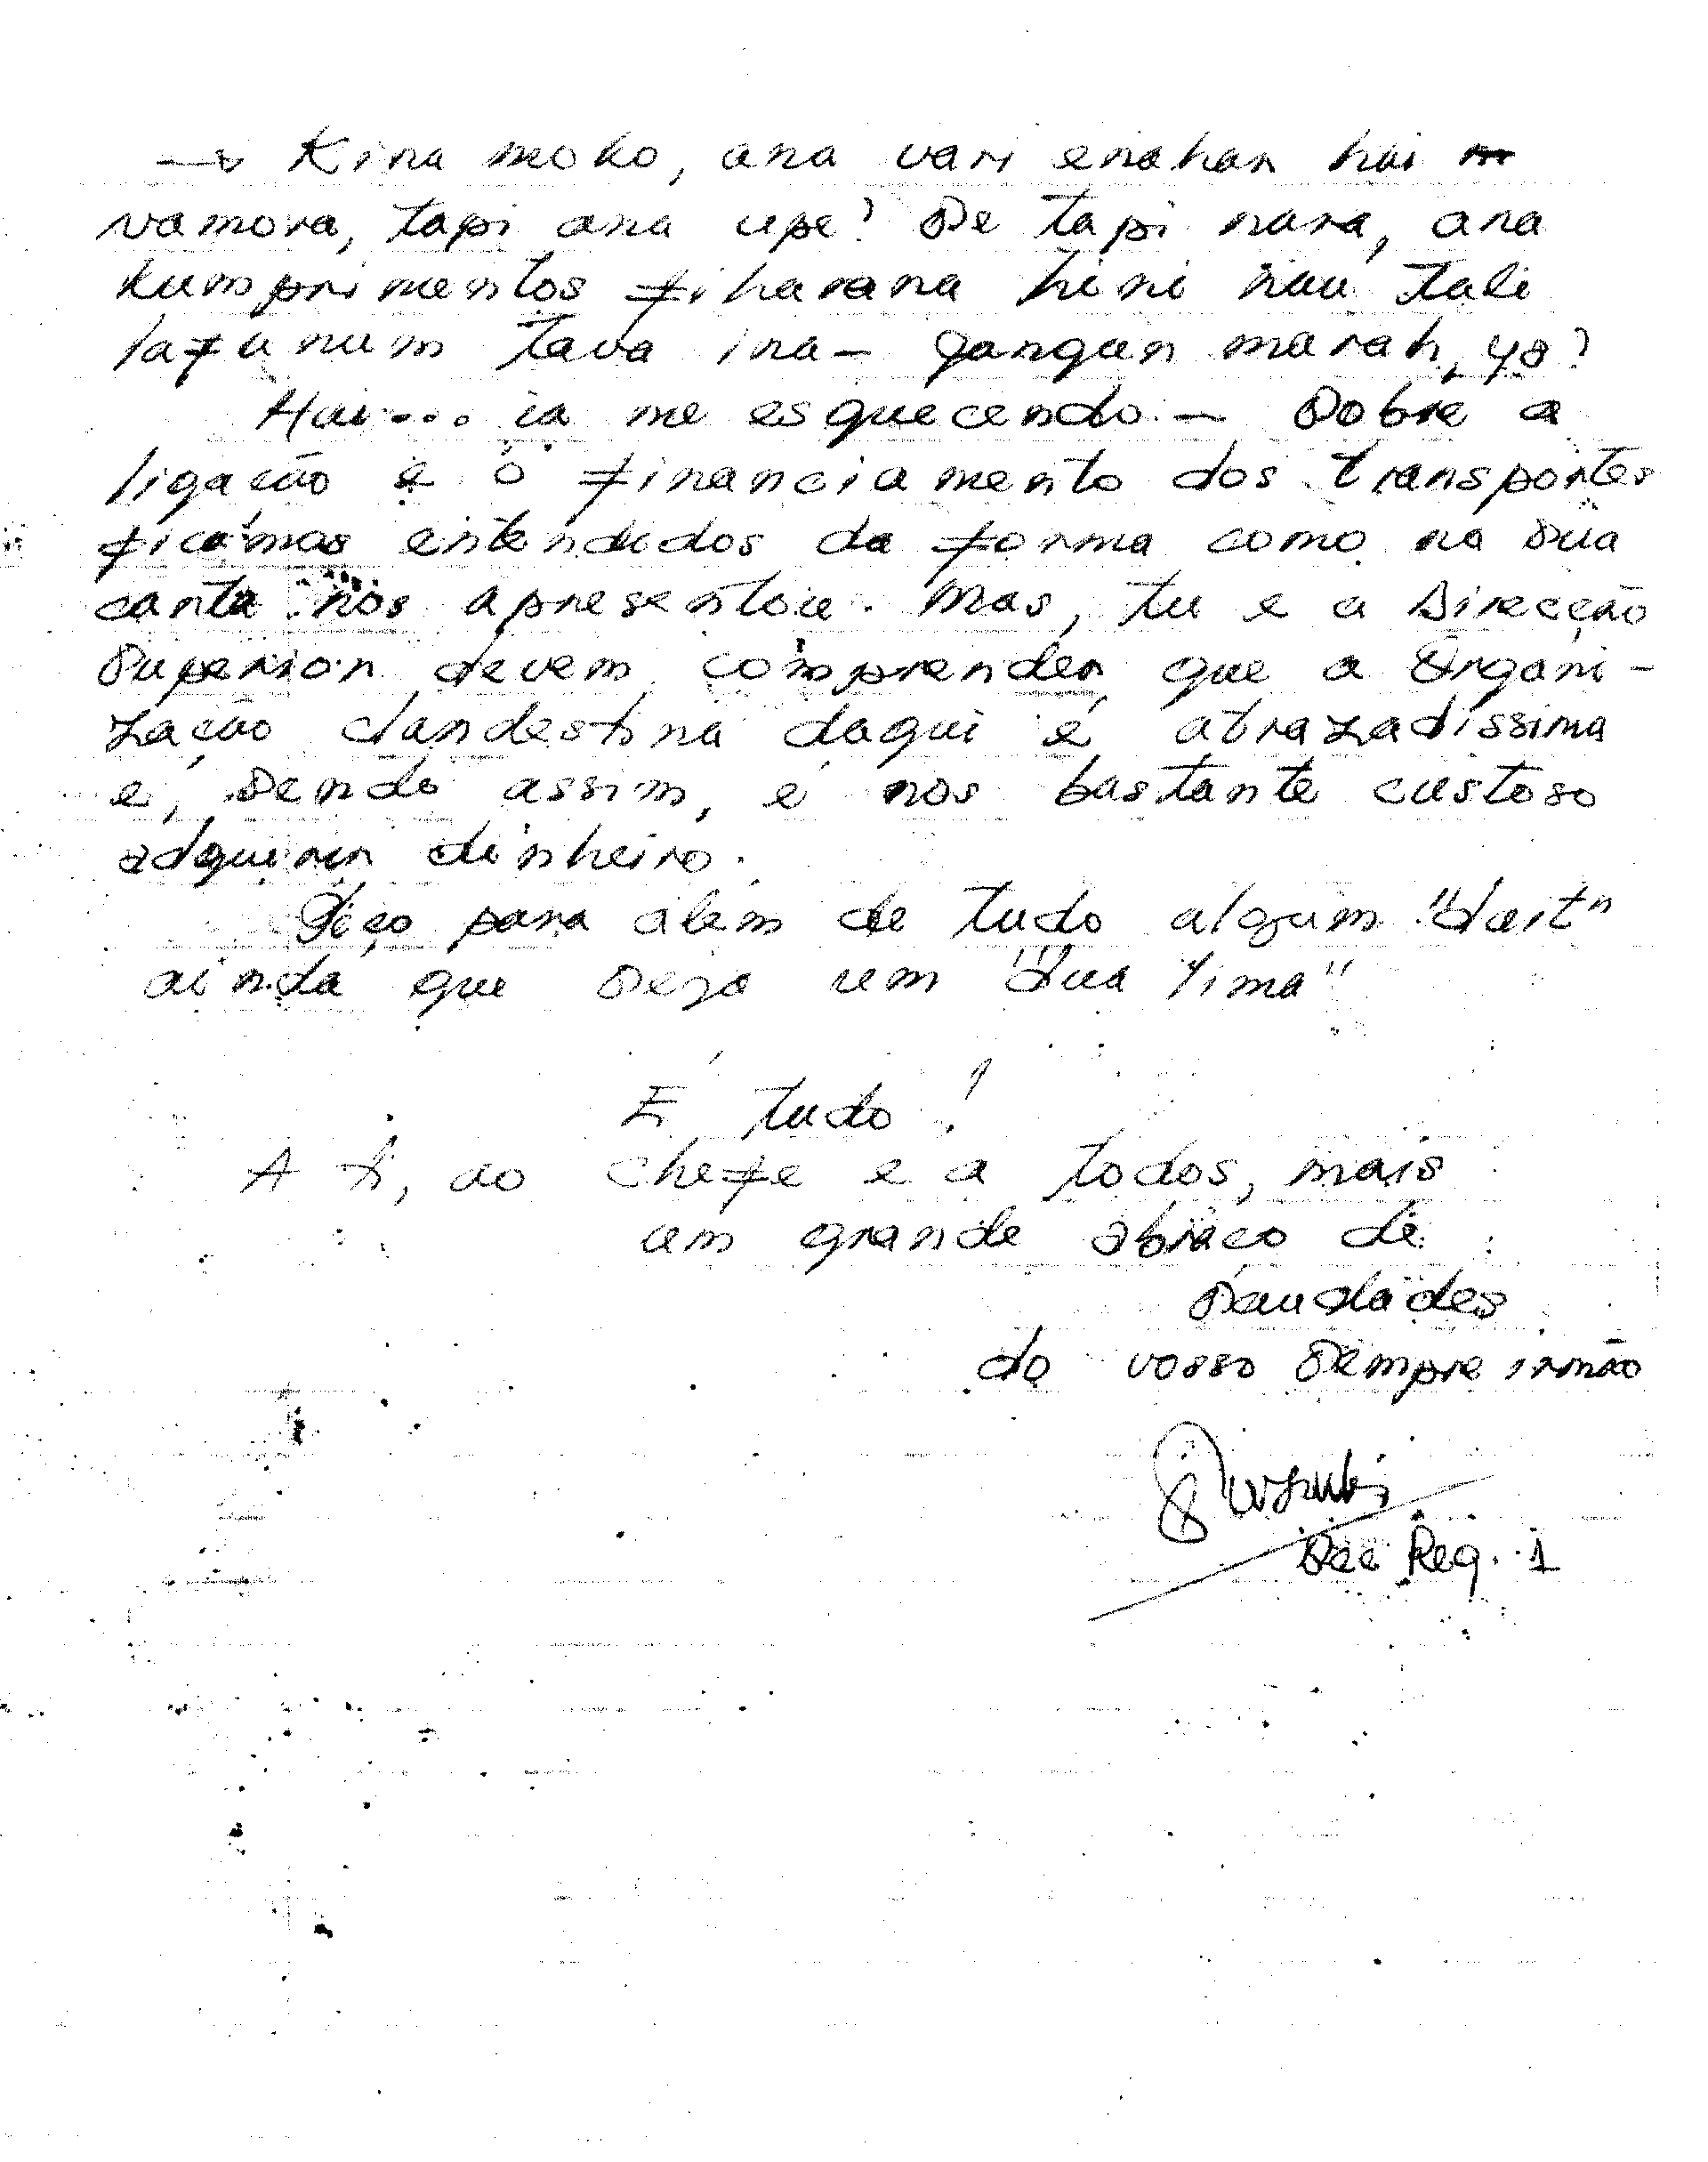 → Kina moko, ana vari enahan hai
namora, tapi ana upe? Se tapi nara, ana
kumprimentos fiharana hini nau tali
lafunum tava ina- jangan marah, ya?
Hai... ia me esquecendo. — Sobre a
ligação e o financiamento dos transportes
ficámos entendidos da forma como na sua
carta nos apresentou. Mas, tu e a Direcção
Superior devem comprender que a Organi-
zação clandestina daqui é atrazadíssima
e, sendo assim, é nos bastante custoso
adquirir dinheiro.
Peço para além de tudo algum
ainda que seja um "dua lima"
É tudo!
A ti, ao chefe e a todos, mais
um grande abraço de
saudades
do vosso sempre irmão
Sec Reg. 1